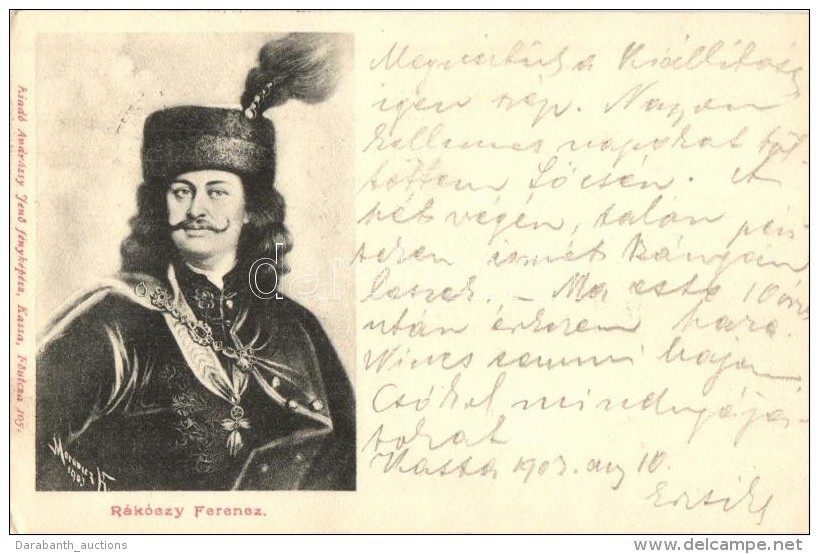 Kiadó Andrássy Jenő fényképész, Kassa, Főutcza 105.
Moravecz K.
1903
Rákóczy Ferencz.
a Kiállítás
igen szép. Nagyon
kellemes napokat töl-
töttem Lőcsén. A
hét végén, talán pén-
teken ismét
leszek. - Ma este 10 óra
után érkezem haza.
Nincs semmi bajom
Csókol mindnyája-
tokat
Kassa 1903. aug 10.
darab
Darabanth_auctions
http://www.delcampe.net